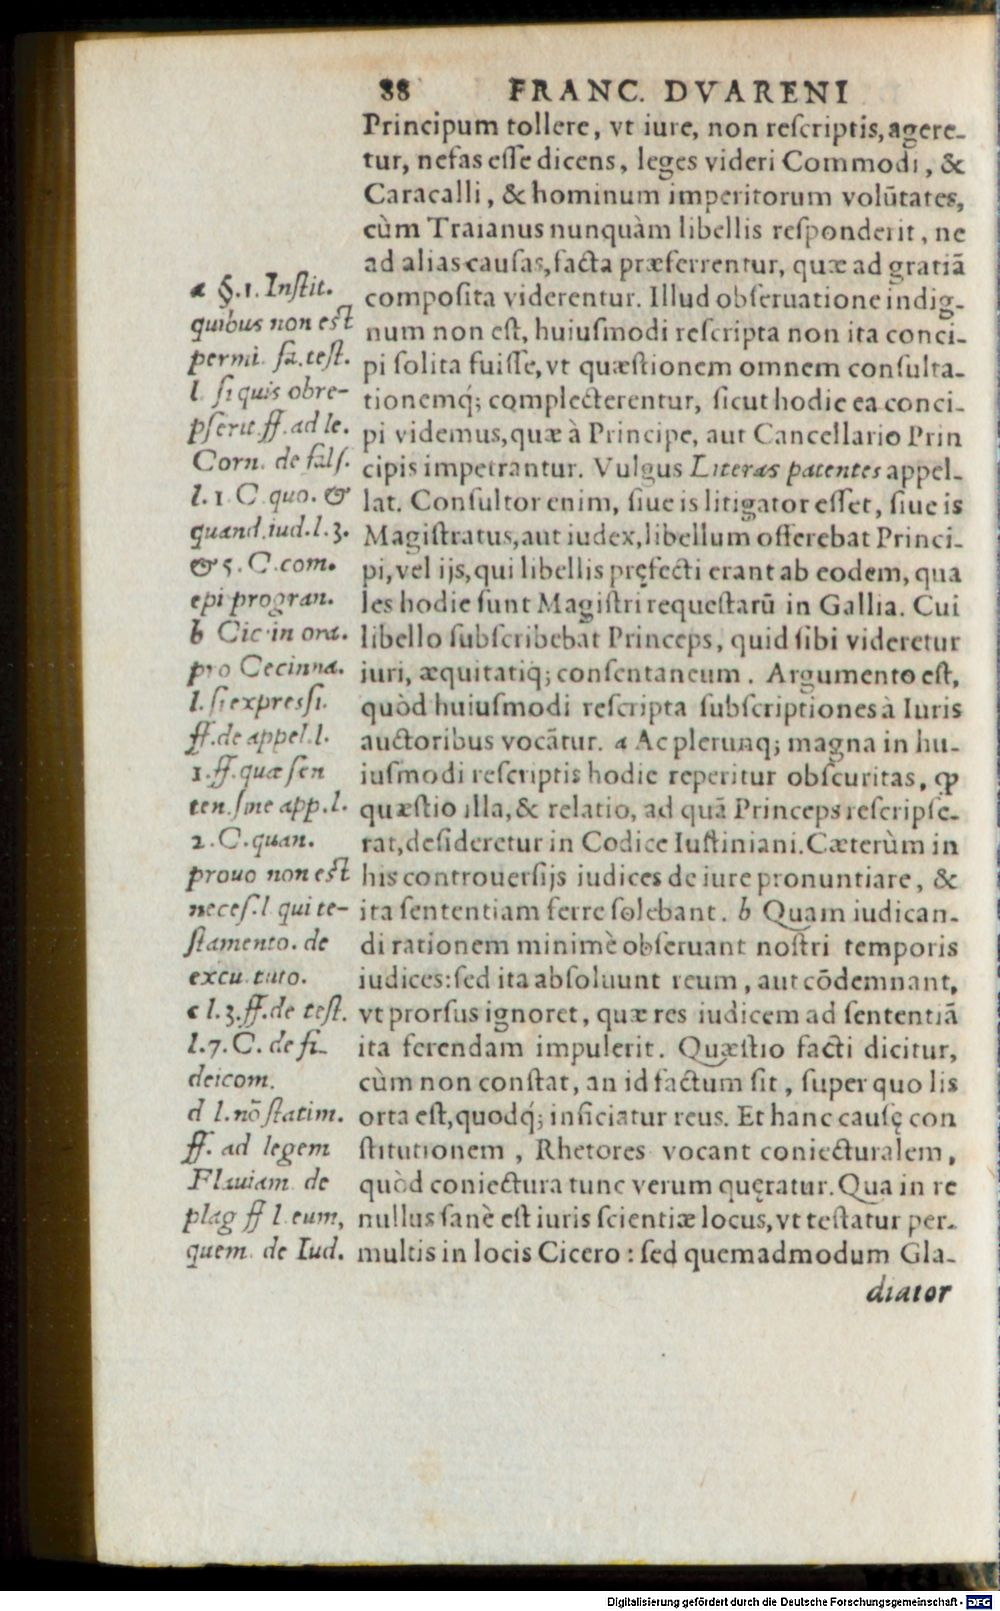 88 FRANC. DVARENI
Principum tollere, vt iure, non reſcriptis, agere-
tur, nefas eſſe dicens, leges videri Commodi, &
Caracalli, & hominum imperitorum volūtates,
cùm Traianus nunquàm libellis reſponderit, ne
ad alias cauſas, facta præferrentur, quæ ad gratiā
compoſita viderentur. Illud obſeruatione indig-
num non eſt, huiuſmodi reſcripta non ita conci-
pi ſolita fuiſſe, vt quæſtionem omnem conſulta-
tionemq́; complecterentur, ſicut hodie ea conci-
pi videmus, quæ à Principe, aut Cancellario Prin
cipis impetrantur. Vulgus Literas patentes appel-
lat. Conſultor enim, ſiue is litigator eſſet, ſiue is
Magiſtratus, aut iudex, libellum offerebat Princi-
pi, vel ijs, qui libellis pręfecti erant ab eodem, qua
les hodie ſunt Magiſtri requeſtarū in Gallia. Cui
libello ſubſcribebat Princeps, quid ſibi videretur
iuri, æquitatiq; conſentaneum. Argumento eſt,
quòd huiuſmodi reſcripta ſubſcriptiones à Iuris
auctoribus vocātur. a Ac plerunq; magna in hu-
iuſmodi reſcriptis hodie reperitur obſcuritas, ꝙ
quæſtio illa, & relatio, ad quā Princeps reſcripſe-
rat, deſideretur in Codice Iuſtiniani. Cæterùm in
his controuerſijs iudices de iure pronuntiare, &
ita ſententiam ferre ſolebant. b Quam iudican-
di rationem minimè obſeruant noſtri temporis
iudices: ſed ita abſoluunt reum, aut cōdemnant,
vt prorſus ignoret, quæ res iudicem ad ſententiā
ita ferendam impulerit. Quæſtio facti dicitur,
cùm non conſtat, an id factum ſit, ſuper quo lis
orta eſt, quodq́; inficiatur reus. Et hanc cauſę con
ſtitutionem, Rhetores vocant coniecturalem,
quòd coniectura tunc verum quęratur. Qua in re
nullus ſanè eſt iuris ſcientiæ locus, vt teſtatur per-
multis in locis Cicero: ſed quemadmodum Gla-
diator
a §. 1. Inſtit.
quibus non eſt
permi. fa. teſt.
l. ſi quis obre-
pſerit. ff. ad le.
Corn. de falſ.
l. 1 C quo. &
quand. iud. l. 3.
& 5. C. com.
epi progran.
b Cic. in ora.
pro Cecinna.
l. ſi expreſſi.
ff. de appel. l.
1. ff. quæ ſen
ten. ſine app. l.
2. C. quan.
prouo non eſt
neceſ. l qui te-
ſtamento. de
excu. tuto.
c l. 3. ff. de teſt.
l. 7. C. de fi-
deicom.
d l. nō ſtatim.
ff. ad legem
Flauiam de
plag ff l. eum,
quem. de Iud.
Digitalisierung gefördert durch die Deutsche Forschungsgemeinschaft - DFG